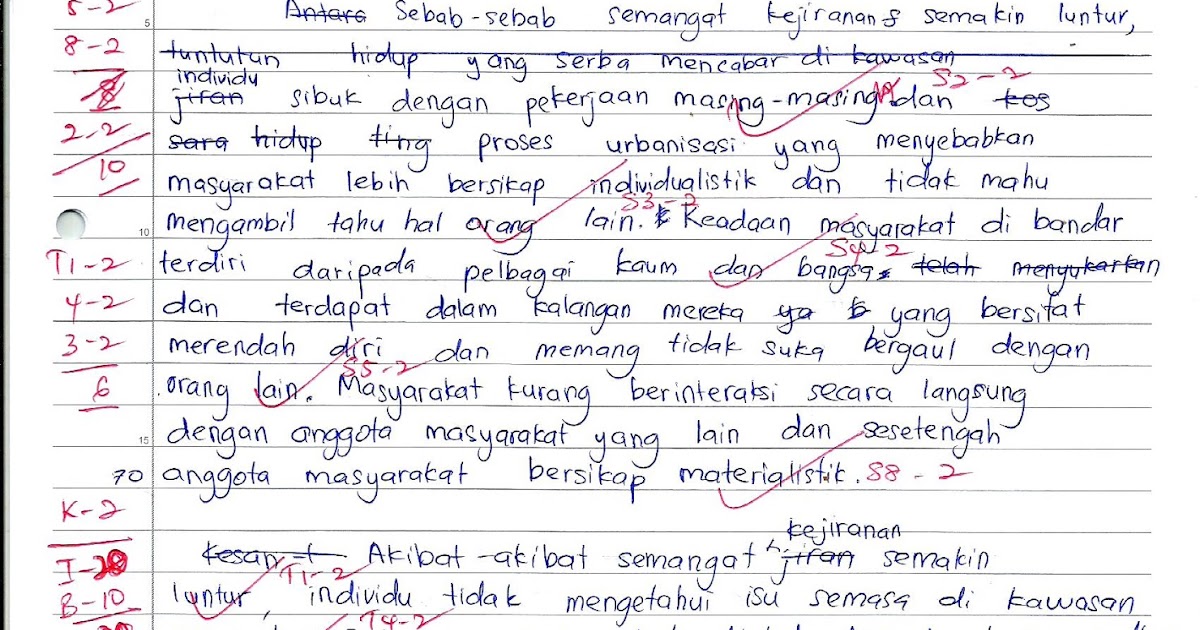 5-2 5 Antara Sebab-sebab semangat kejiranan semakin luntur,
8-2 tuntutan hidup yang serba mencabar di kawasan
individu S2-2
8 jiran sibuk dengan pekerjaan masing-masing dan kos
2-2 sara hidup ting proses urbanisasi yang menyebabkan
10 masyarakat lebih bersikap individualistik dan tidak mahu
S3-2
10 mengambil tahu hal orang lain. Keadaan masyarakat di bandar
S4-2
T1-2 terdiri daripada pelbagai kaum dan bangsa telah menyukarkan
4-2 dan terdapat dalam kalangan mereka ya yang bersifat
3-2 merendah diri dan memang tidak suka bergaul dengan
S5-2
6 orang lain. Masyarakat kurang berinteraksi secara langsung
15 dengan anggota masyarakat yang lain dan sesetengah
70 anggota masyarakat bersikap materialistik. S8-2
K-2
kejiranan
I- Kesan-t Akibat-akibat semangat jiran semakin
T1-2
B-10 luntur, individu tidak mengetahui isu semasa di kawasan
T4-2